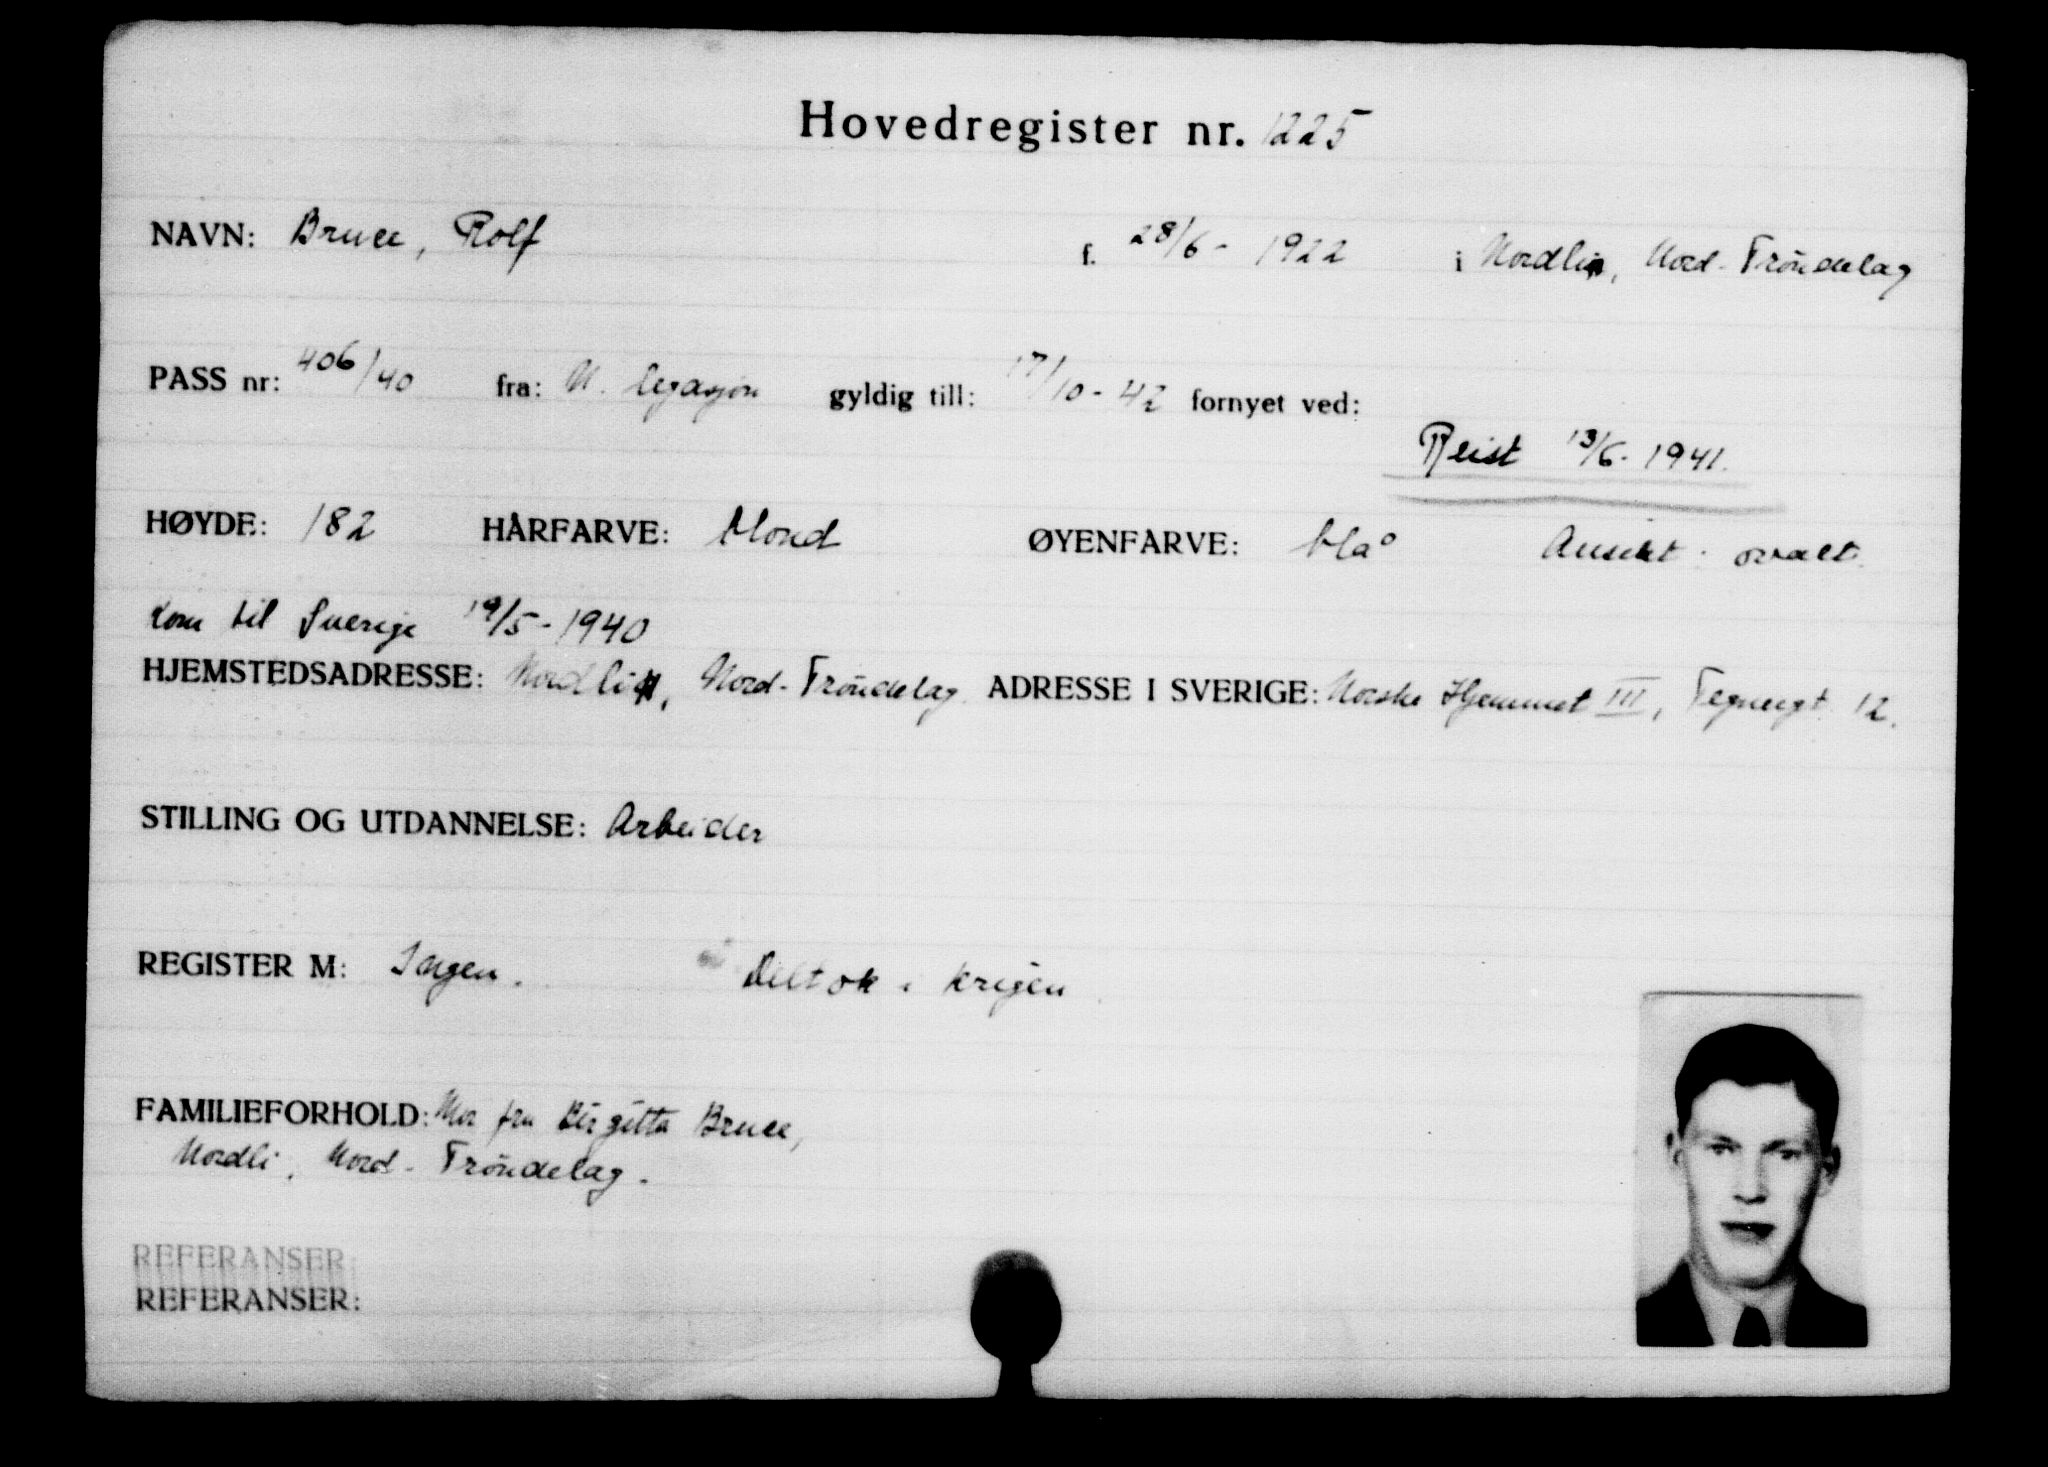 Hovedregister nr. 1225
NAVN: Bruce, Rolf f. 28/6 - 1922 i Nordli, Nord-Tröndelag
PASS nr: 406/40 fra: N. legasjon gyldig till: 17/10 - 42 fornyet ved:
Reist 13/6 - 1941.
HØYDE: 182 HÅRFARVE: blond ØYENFARVE: blå Ansikt: ovalt.
Kom til Sverige 19/5 - 1940
HJEMSTEDSADRESSE: Nordli, Nord-Tröndelag. ADRESSE I SVERIGE: Norske Hjemmet III, Tegnergt. 12.
STILLING OG UTDANNELSE: Arbeider
REGISTER M: Ingen. Deltok i krigen.
FAMILIEFORHOLD: Mor fru Birgitta Bruce,
Nordli, Nord-Tröndelag.
REFERANSER:
REFERANSER: